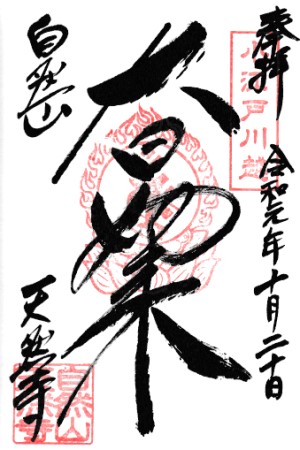 奉拝
小江戸川越
令和元年十月二十日
大日如来
自然山
天然寺
自然山
天然寺